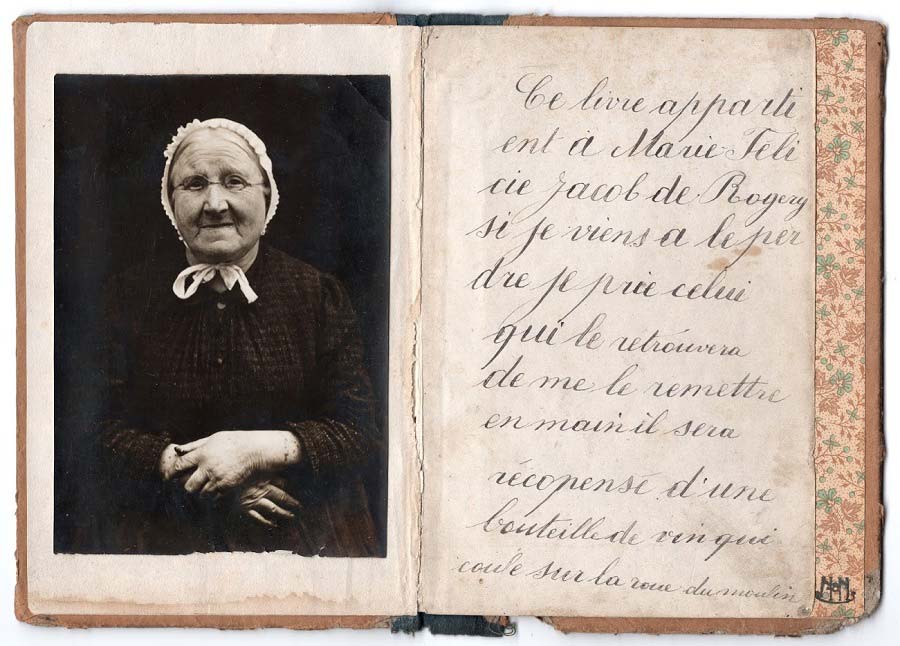 Ce livre apparti
ent à Marie Féli
cie Jacob de Rogery
si je viens a le per
dre je prie celui
qui le retrouvera
de me le remettre
en main il sera
récopensé d'une
bouteille de vin qui
coule sur la roue du moulin